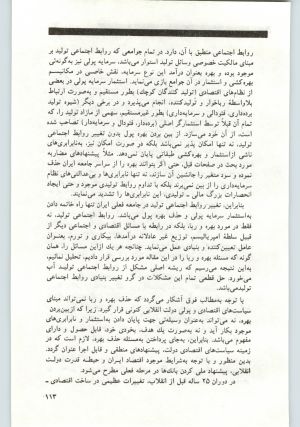 روابط اجتماعی منطبق با آن، دارد. در تمام جوامعی که روابط اجتماعی تولید بر
مبنای مالکیت خصوصی وسائل تولید استوار می‌باشد، سرمایه پولی نیز به‌گونه‌ئی
موجود بوده و بهره بعنوان درآمد این نوع سرمایه، نقش خاصی در مکانیسم
بهره‌کشی و استثمار در آن جوامع بازی می‌نماید. استثمار سرمایه پولی در بعضی
از نظام‌های اقتصادی (تولیدکنندگان کوچک) بطور مستقیم و به‌صورت ارتباط
بلاواسطهٔ رباخوار و تولیدکننده، انجام می‌پذیرد و در برخی دیگر (شیوه تولید
برده‌داری، فئودالی و سرمایه‌داری) بطور غیرمستقیم، سهمی از مازاد تولید را، که
تمام آن قبلاً توسط استثمارگر اصلی (برده‌دار، فئودال و سرمایه‌دار) تصاحب شده
است، از آن خود می‌سازد. از بین بردن بهره پول بدون تغییر روابط اجتماعی
تولید، نه تنها امکان پذیر نمی‌باشد بلکه در صورت امکان نیز، به‌نابرابری‌های
ناشی از استثمار و بهره‌کشی طبقاتی پایان نمی‌دهد. مثلاً پیشنهادهای مضار به
مورد بحث در صفحات قبل، حتی اگر بتوانند بهره را از سراسر جامعه ایران حذف
نموده و سود متغیر را جانشین آن سازند، نه تنها نابرابری‌ها و بی‌عدالتی‌های نظام
سرمایه‌داری را از بین نمی‌برند بلکه با تداوم روابط تولیدی موجود و حتی ایجاد
انحصارات بزرگ مالی ـ تولیدی، این نابرابری‌ها را تشدید می‌نمایند.
بنابراین، تغییر روابط اجتماعی تولید در جامعه فعلی ایران تنها راه خاتمه دادن
به‌استثمار سرمایه پولی و حذف بهره پول می‌باشد. روابط اجتماعی تولید، نه
فقط در مورد بهره و ربا، بلکه در رابطه با مسائل اقتصادی و اجتماعی دیگر از
قبیل سلطه امپریالیسم، توزیع غیر عادلانه درآمدها، بیکاری و تورم، بعنوان
عامل تعیین‌کننده و بنیادی عمل می‌نماید. چنانچه هر یک از این مسائل را، همان
گونه که مسئله بهره و ربا را در این مقاله مورد بررسی قرار دادیم، تحلیل نمائیم،
به‌این نتیجه می‌رسیم که ریشه اصلی مشکل از روابط اجتماعی تولید آب
می‌خورد. حل قطعی تمام این مشکلات در گرو تغییر بنیادی روابط اجتماعی
تولید می‌باشد.
با توجه به‌مطالب فوق آشکار می‌گردد که حذف بهره و ربا نمی‌تواند مبنای
سیاست‌های اقتصادی و پولی دولت انقلابی کنونی قرار گیرد. زیرا که از بین‌بردن
بهره، نه می‌تواند به‌عنوان وسیله‌ئی جهت پایان دادن به‌استثمار و نابرابری‌های
موجود بکار آید و نه به‌صورت یک هدف، بخودی خود، قابل حصول و دارای
مفهوم می‌باشد. بنابراین، به‌جای پرداختن به‌مسئله حذف بهره، لازم است که در
زمینه سیاست‌های اقتصادی دولت، پیشنهادهای منطقی و قابل اجرا عنوان گردد.
بدین منظور و با توجه به‌شرایط موجود اقتصاد ایران و حیطه قدرت دولت
انقلابی، پیشنهاد ملی کردن بانک‌ها در مرحله فعلی مطرح می‌شود.
در دوران ۲۵ ساله قبل از انقلاب، تغییرات عظیمی در ساخت اقتصادی ـ
۱۱۳